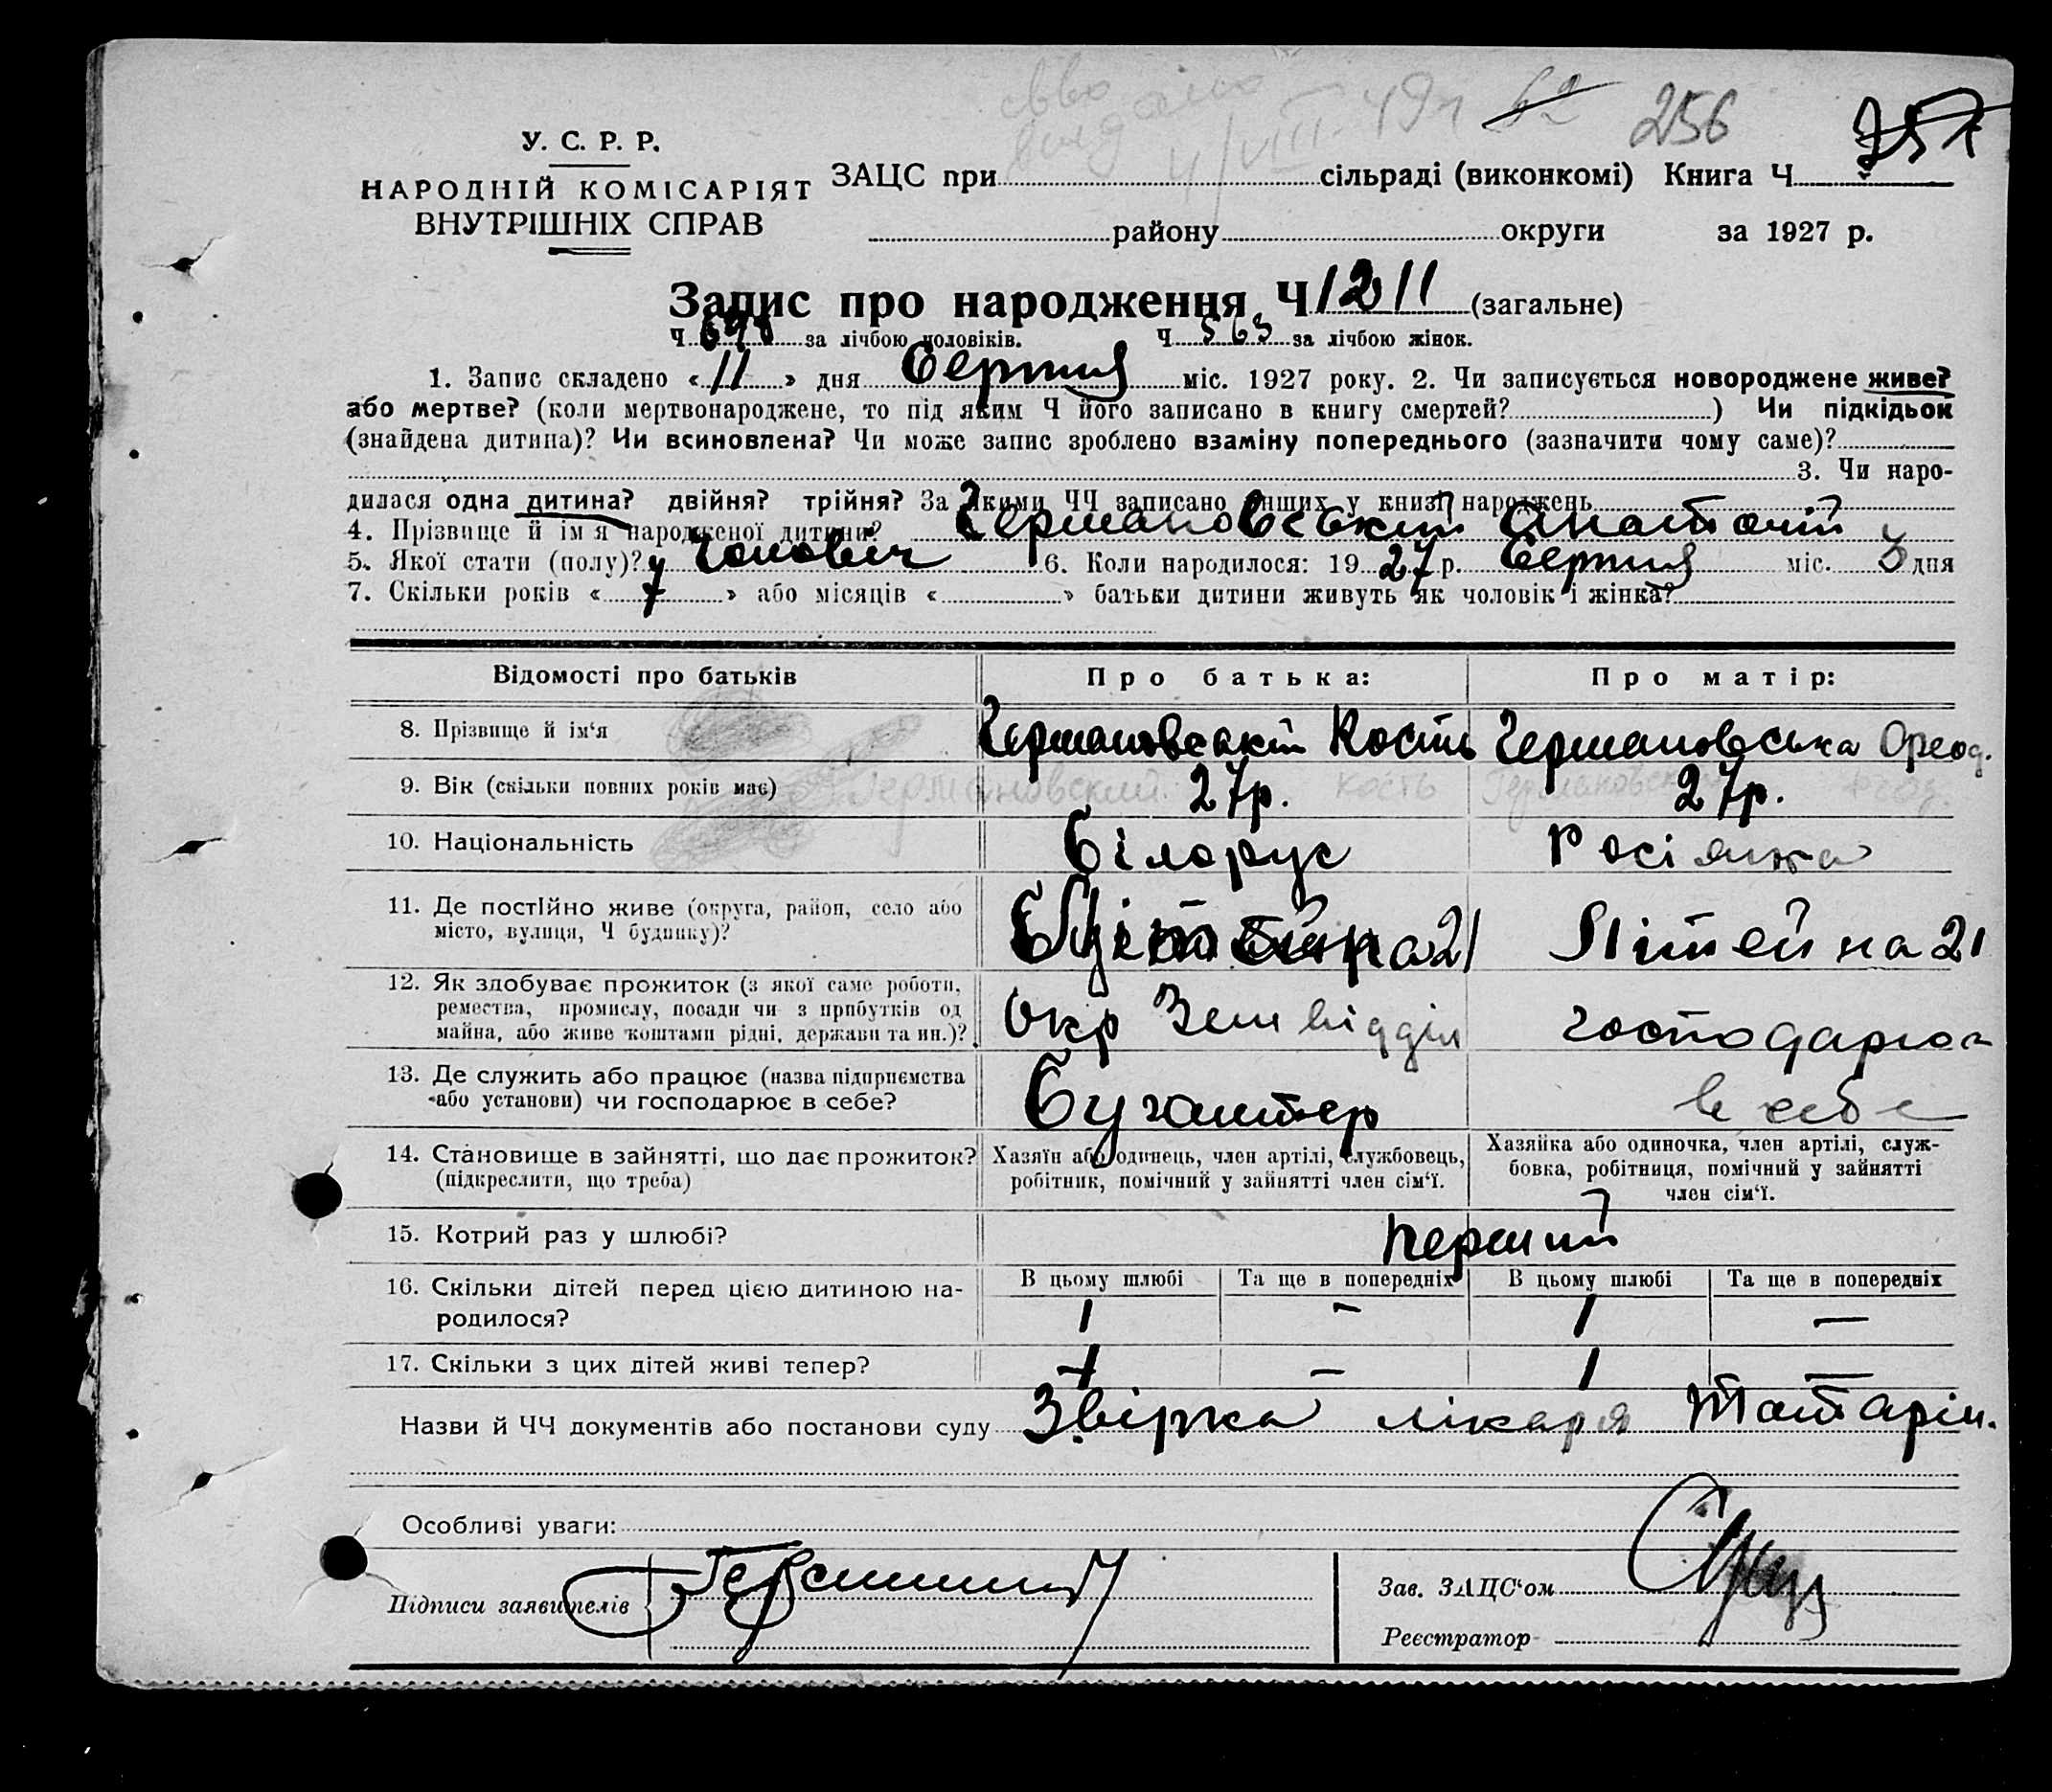 256
У. С. Р. Р.
НАРОДНІЙ КОМІСАРІЯТ
ВНУТРІШНІХ СПРАВ
ЗАЦС при сільраді (виконкомі) Книга Ч.
району округи за 1927 р.
Запис про народження Ч 1211 (загальне)
Ч. 648 за лічбою чоловіків. Ч. 563 за лічбою жінок.
1. Запис складено « 11 » дня Серпня міс. 1927 року. 2. Чи записується новороджене живе?
або мертве? (коли мертвонароджене, то під яким Ч його записано в книгу смертей? ) Чи підкідьок
(знайдена дитина)? Чи всиновлена? Чи може запис зроблено взаміну попереднього (зазначити чому саме)?
3. Чи наро-
дилася одна дитина? двійня? трійня? За якими ЧЧ записано инших у книзі народжень
4. Прізвище й ім'я народженої дитини? Германовський Анатолій
5. Якої стати (полу)? Чоловіч 6. Коли народилося: 19 27 р. Серпня міс. 3 дня
7. Скільки років « 7 » або місяців « » батьки дитини живуть як чоловік і жінка?
Відомості про батьків Про батька: Про матір:
8. Прізвище й ім'я Германовський Кость Германовська
9. Вік (скільки повних років має) 27р. 27р.
Германовский Кость Германовская
10. Національність Білорус Росіянка
11. Де постійно живе (округа, район, село або
місто, вулиця, Ч будинку)? 21 Літейна 21
12. Як здобуває прожиток (з якої саме роботи,
ремества, промислу, посади чи з прибутків од
майна, або живе коштами рідні, держави та ин.)? Окр Зем відділ господарює
13. Де служить або працює (назва підприємства
або установи) чи господарює в себе? Бугалтер в себе
14. Становище в зайнятті, що дає прожиток?
(підкреслити, що треба)
Хазяїн або одинець, член артілі, службовець,
робітник, помічний у зайнятті член сім'ї.
Хазяйка або одиночка, член артілі, служ-
бовка, робітниця, помічний у зайнятті
член сім'ї.
15. Котрий раз у шлюбі? перший
16. Скільки дітей перед цією дитиною на-
родилося?
В цьому шлюбі Та ще в попередніх В цьому шлюбі Та ще в попередніх
1 - 1 —
17. Скільки з цих дітей живі тепер? 1 — 1 —
Назви й ЧЧ документів або постанови суду Звірка лікаря Татарін.
Особливі уваги:
Підписи заявителів
Зав. ЗАЦС'ом
Реєстратор